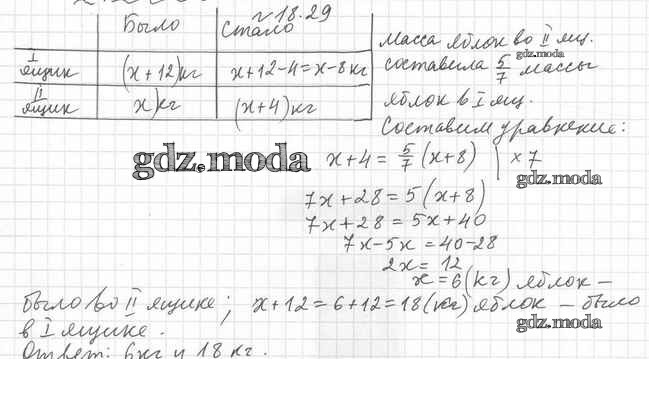 №18.29
Было Стало
I ящик (x+12)кг x+12-4=x-8кг
II ящик x)кг (x+4)кг
Масса яблок во II ящ.
gdz.moda
составила 5/7 массы
яблок в I ящ.
Составим уравнение:
gdz.moda
x+4 = 5/7 (x+8) | ×7
gdz.moda
7x+28=5(x+8)
7x+28=5x+40
7x-5x=40-28
2x=12
x=6(кг) яблок –
было во II ящике; x+12=6+12=18(кг) яблок – было
в I ящике.
gdz.moda
Ответ: 6кг и 18кг.